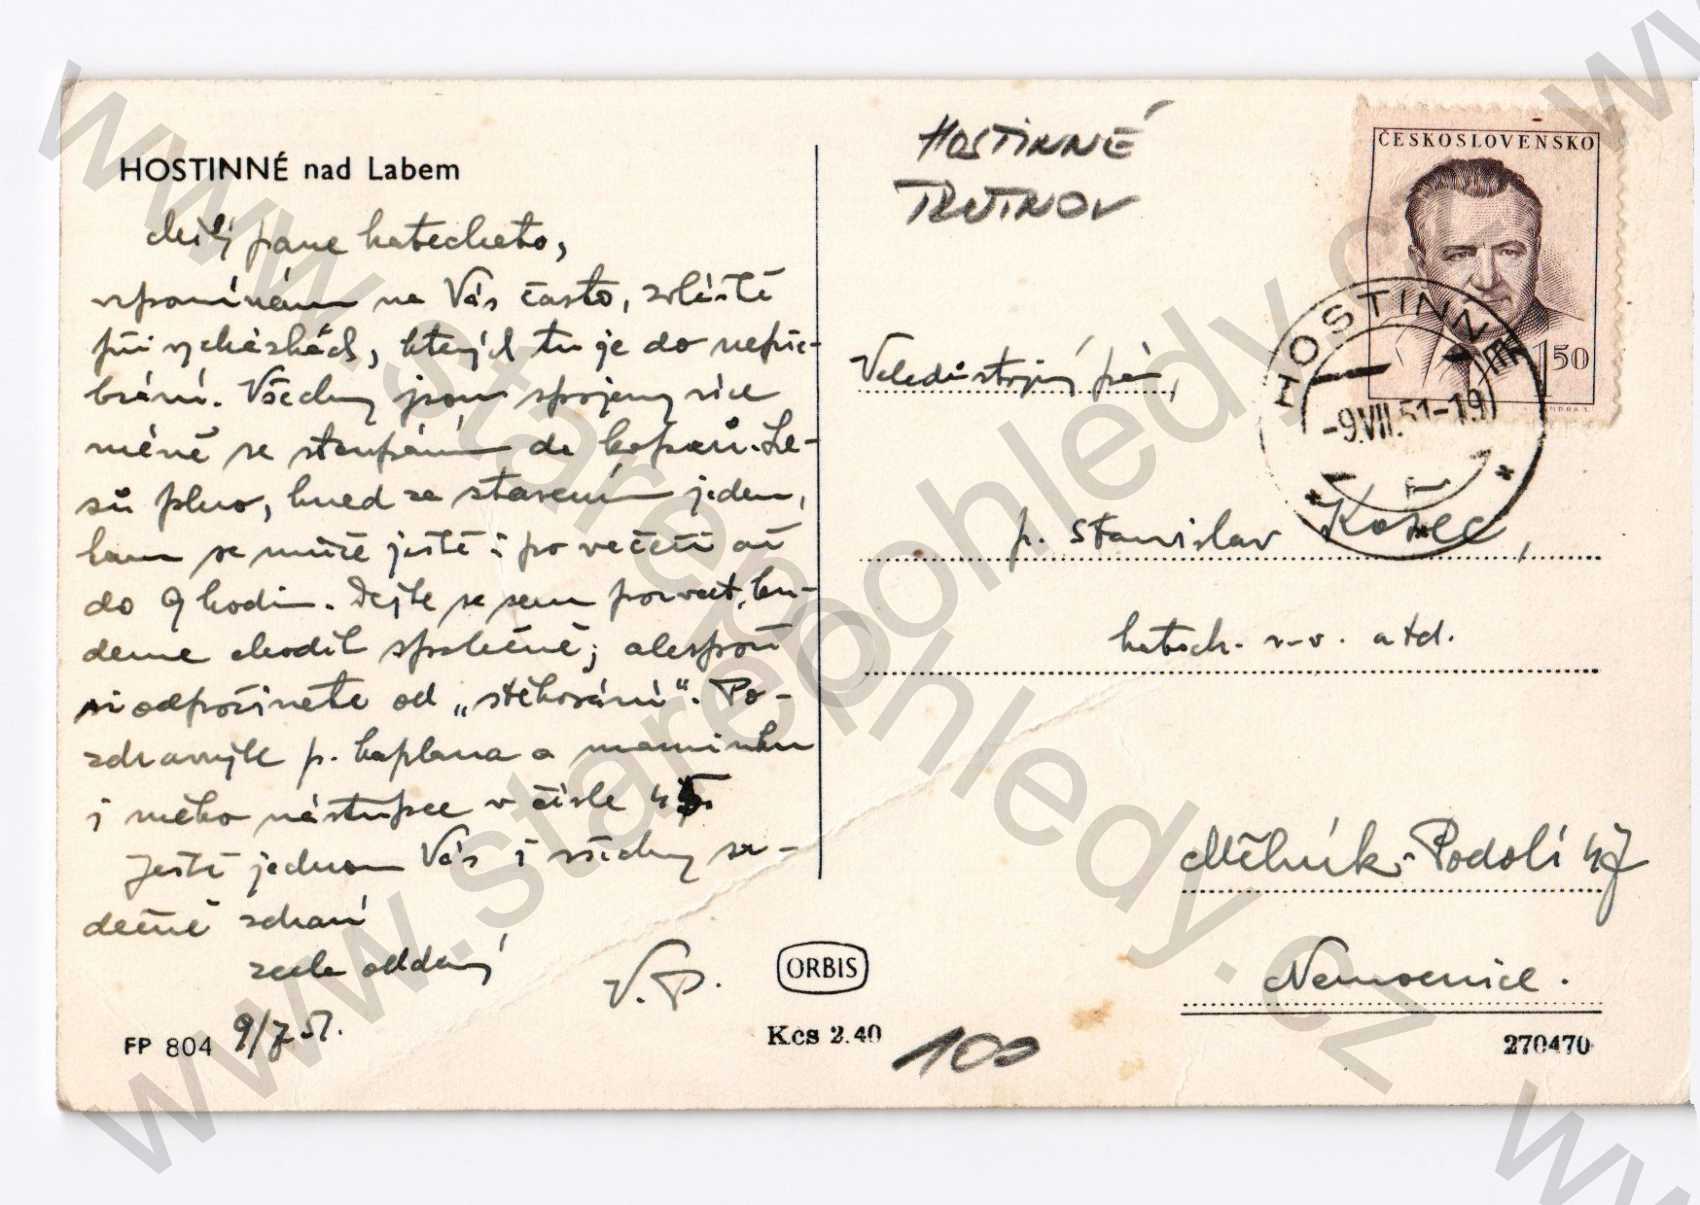 HOSTINNÉ nad Labem
Milý pane katecheto,
vzpomínám na Vás často, zvláště
při vycházkách, kterých tu je do nepře-
brání. Všechny jsou spojeny více
méně se stoupáním do kopců. Le-
sů plno, hned za stavením jeden,
kam se může ještě i po večeři až
do 9 hodin. Dejte se sem pozvat, bu-
deme chodit společně; alespoň
si odpočinete od „stěhování“. Po-
zdravujte p. kaplana a maminku
i mého nástupce v čísle 45.
Ještě jednou Vás i všechny sr-
dečně zdraví
zcela oddaný
V.P.
9/7.51.
FP 804
ORBIS
Kcs 2.40
100
HOSTINNÉ
TRUTNOV
ČESKOSLOVENSKO
1 50
HOSTINNÉ
-9.VII.51-19
Veledůstojný pán,
p. Stanislav
katech. v.v. atd.
Mělník-Podolí 47
Nemocnice.
270470
www.starepohledy.cz
www.starepohledy.cz